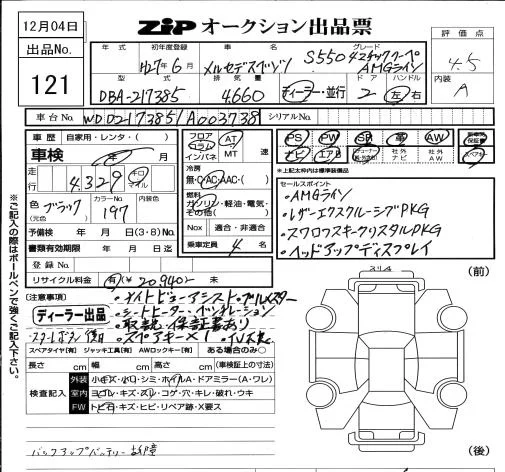 12月04日
ZIP オークション出品票
評価点
4.5
内装
A
出品No.
121
年式 初年度登録 車名 グレード
H27年6月 メルセデスベンツ S550 4マチッククーペ
AMGライン
型式 排気量 ドア ハンドル
DBA-217385 4660 ディーラー・並行 2 左 右
車台No. WDD2173851A003738 シリアルNo.
車歴 自家用・レンタ・( )
車検 年 月
走行 4,329 キロ マイル
色(元色) ブラック カラーNo. 197 内装色
予備検 年 月 日(3・8)No.
書類有効期限 年 月 日迄
登録No.
リサイクル料金 有(¥20,940-)
フロア コラム インパネ AT MT 速
冷房
無・C・AC・AAC・( )
燃料
ガソリン・軽油・電気・その他( )
Nox 適合・非適合
乗車定員 4 名
PS PW SR 革 AW
ナビ エアB 社外ナビ 社外AW
*上記太枠内は標準装備品
セールスポイント
・AMGライン
・レザーエクスクルーシブPKG
・スワロフスキークリスタルPKG
・ヘッドアップディスプレイ
注意事項
・ナイトビューアシスト・ブルメスター
ディーラー出品
・シートヒーター・ベンチレーション
・取説・保証書あり
・スペアキー×1
スペアタイヤ[有] ジャッキ工具[有] AWロックキー[有] ある場合のみ○
長さ cm 幅 cm 高さ cm (車検証上の寸法)
検査記入
外装 小キズ・小凹・シミ・ホイルA・ドアミラー(A・ワレ)
室内 ヨゴレ・キズ・スレ・コゲ・穴・キレ・破れ・ウキ
FW トビ石・キズ・ヒビ・リペア跡・X要ス
バックアップバッテリー故障
スリA
(前)
(後)
※ご記入の際はボールペンで強くご記入下さい。